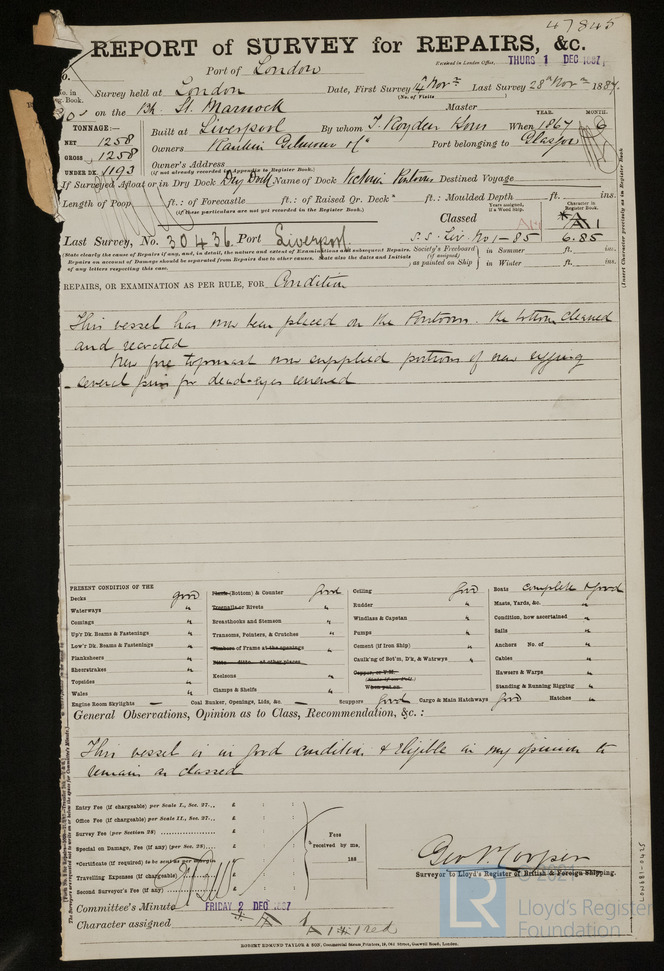 47845
REPORT of SURVEY for REPAIRS, &c.
Port of London
Received in London Office, THURS 1 DEC 1887
Survey held at London Date, First Survey 14 Novr Last Survey 28th Novr 1887.
(No. of Visits )
on the Bk. St. Marnock Master
TONNAGE:—
NET 1258
GROSS 1258
UNDER DK. 1193
Built at Liverpool By whom T. Royden & Sons When 1867 6
YEAR. MONTH.
Owners Rankin Gilmour & Co Port belonging to Glasgow
Owner's Address
(if not already recorded in Appendix to Register Book.)
If Surveyed Afloat or in Dry Dock Dry Dock Name of Dock Victoria Pontoons Destined Voyage
Length of Poop ft.: of Forecastle ft.: of Raised Qr. Deck ft.: Moulded Depth ft. ins.
(if these particulars are not yet recorded in the Register Book.)
Classed
Years assigned, if a Wood Ship.
Character in Register Book.
A1
Last Survey, No. 30436 Port Liverpool S.S. Liv. No 1-85 6.85
(State clearly the cause of Repairs if any, and, in detail, the nature and extent of Examinations and subsequent Repairs.
Repairs on account of Damage should be separated from Repairs due to other causes. State also the dates and initials
of any letters respecting this case.
Society's Freeboard (if assigned) as painted on Ship
in Summer ft. ins.
in Winter ft. ins.
(Insert Character precisely as in Register Book
REPAIRS, OR EXAMINATION AS PER RULE, FOR Condition
This vessel has now been placed on the Pontoons. The bottom cleaned
and recoated
New fore topmast now supplied portions of new rigging
several pins for dead-eyes renewed
PRESENT CONDITION OF THE
Decks good
Waterways "
Comings "
Up'r Dk. Beams & Fastenings "
Low'r Dk. Beams & Fastenings "
Planksheers "
Sheerstrakes "
Topsides "
Wales "
Engine Room Skylights —
Plank (Bottom) & Counter good
Treenails or Rivets "
Breasthooks and Stemson "
Transoms, Pointers, & Crutches "
Timbers of Frame at the openings "
Ditto Ditto at other places "
Keelsons "
Clamps & Shelfs "
Coal Bunker, Openings, Lids, &c. —
Ceiling good
Rudder "
Windlass & Capstan "
Pumps "
Cement (if Iron Ship) "
Caulk'ng of Bot'm, D'k, & Watrwys "
Copper, or Y.M.
When put on
Scuppers good Cargo & Main Hatchways good Hatches "
Boats complete & good
Masts, Yards, &c. "
Condition, how ascertained "
Sails "
Anchors No. of "
Cables "
Hawsers & Warps "
Standing & Running Rigging "
General Observations, Opinion as to Class, Recommendation, &c.:
This vessel is in good condition & Eligible in my opinion to
remain as classed
Entry Fee (if chargeable) per Scale I., Sec. 27... £ : :
Office Fee (if chargeable) per Scale II., Sec. 27... £ : :
Survey Fee (per Section 28) £ : :
Special on Damage, Fee (if any) (per Sec. 28) £ : :
*Certificate (if required) to be sent as per margin
Travelling Expenses (if chargeable) £ : :
Second Surveyor's Fee (if any) £ : :
Fees received by me, 188
Geo. P. Cooper
Surveyor to Lloyd's Register of British & Foreign Shipping.
Committee's Minute FRIDAY 2 DEC 1887
Character assigned
ROBERT EDMUND TAYLOR & SON, Commercial Steam Printers, 19, Old Street, Goswell Road, London.
© 2021
LR
Lloyd's Register
Foundation